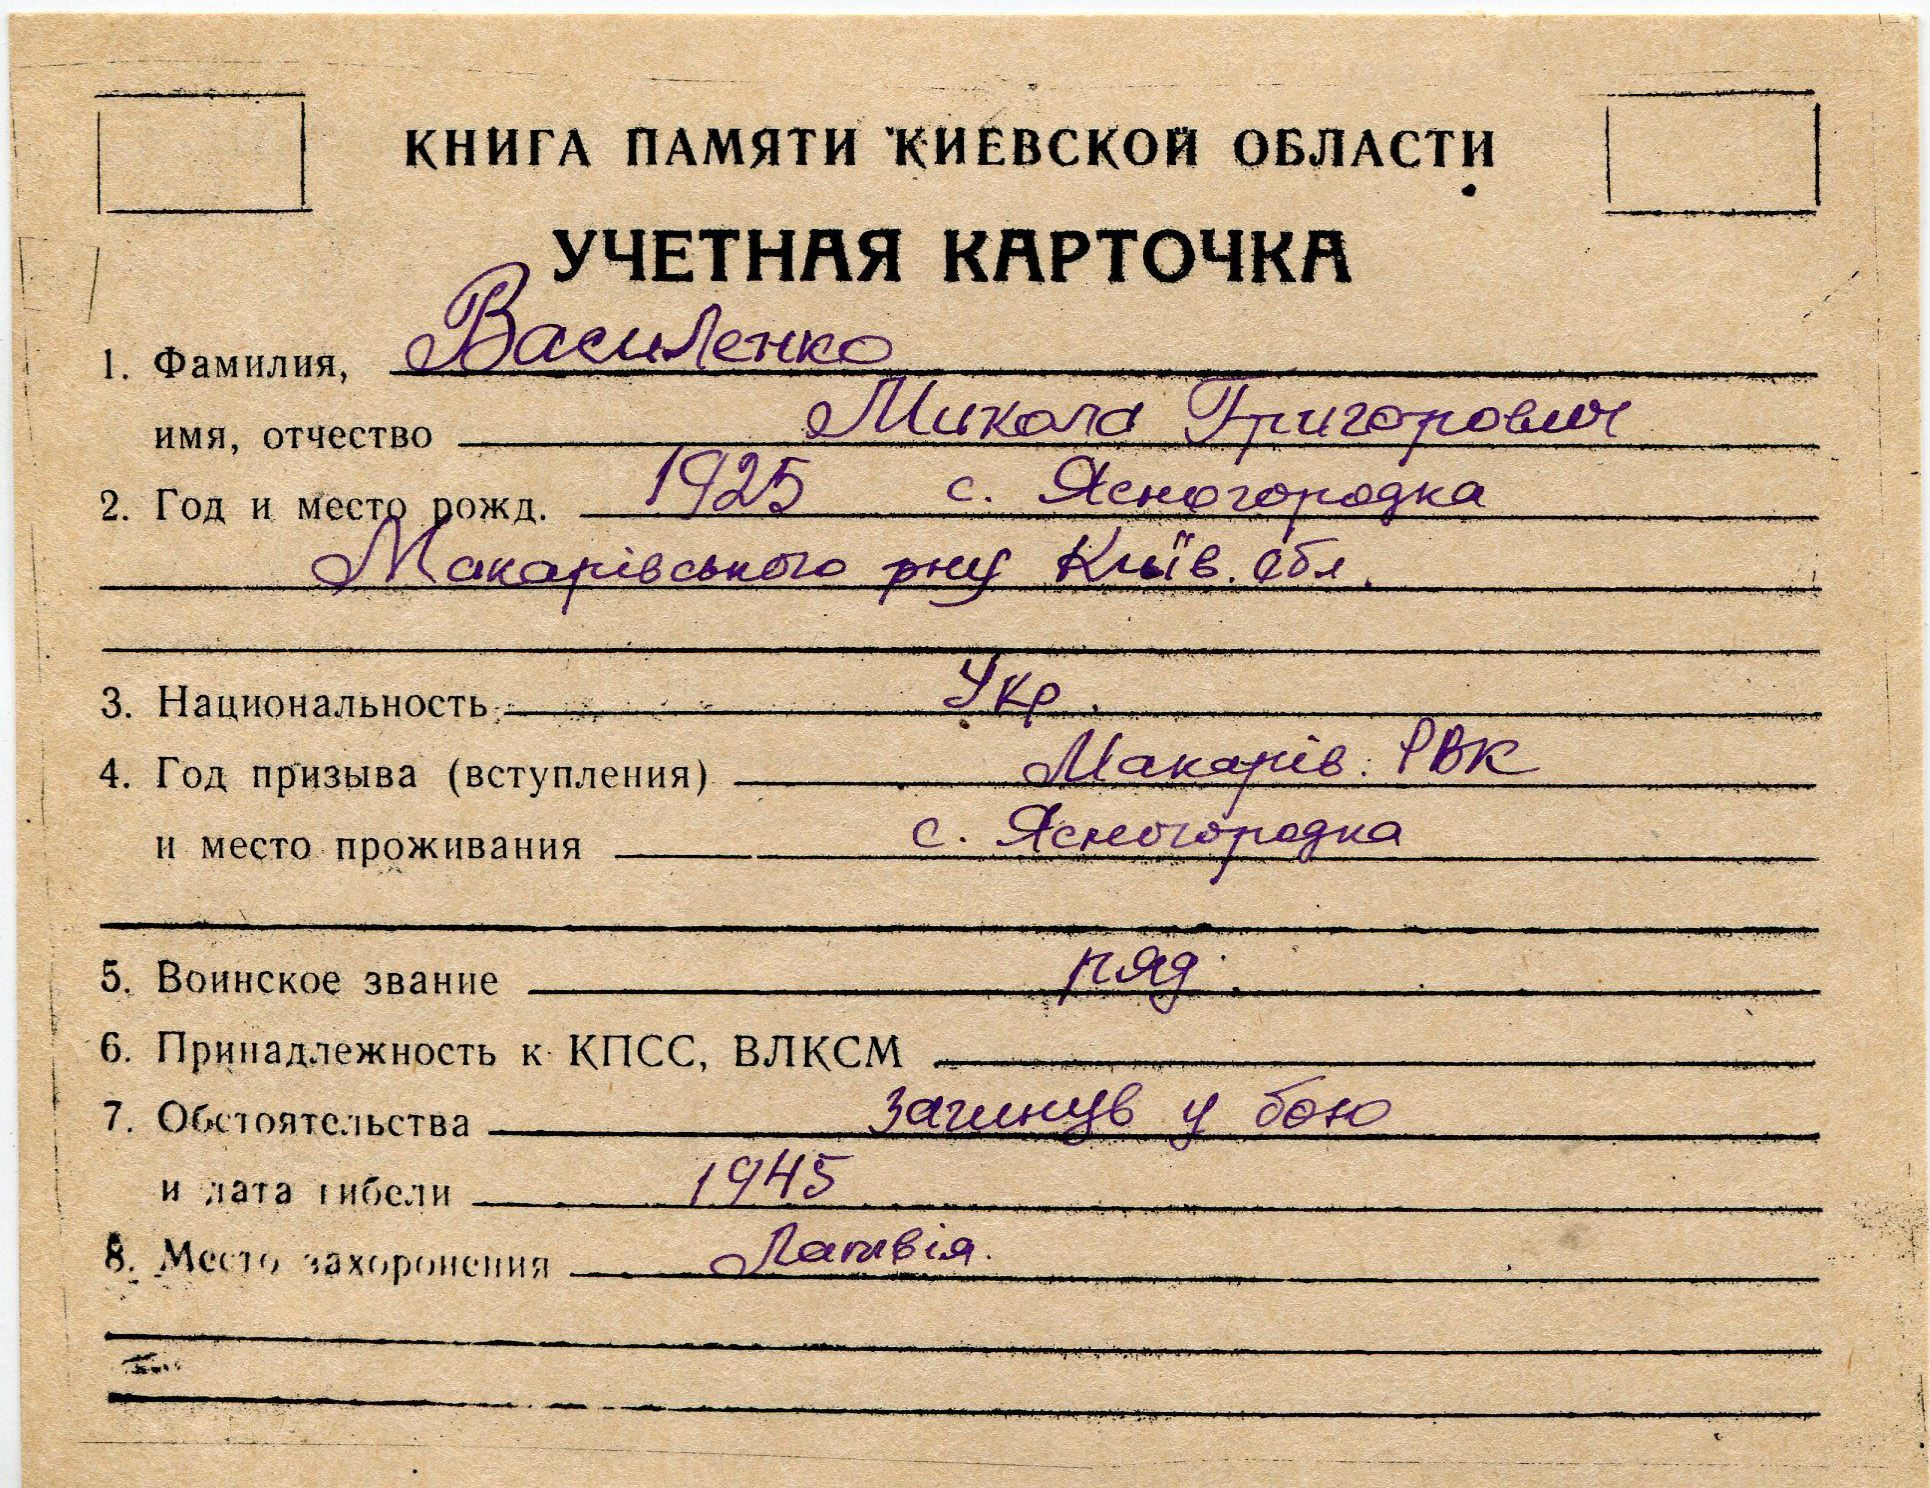 КНИГА ПАМЯТИ КИЕВСКОЙ ОБЛАСТИ
УЧЕТНАЯ КАРТОЧКА
1. Фамилия, Василенко
имя, отчество Микола Григорович
2. Год и место рожд. 1925 с. Ясногородка
Макарівського рну Київ. обл.
3. Национальность Укр.
4. Год призыва (вступления) Макарів. РВК
и место проживания с. Ясногородка
5. Воинское звание ряд.
6. Принадлежность к КПСС, ВЛКСМ
7. Обстоятельства загинув у бою
и дата гибели 1945
8. Место захоронения Латвія.